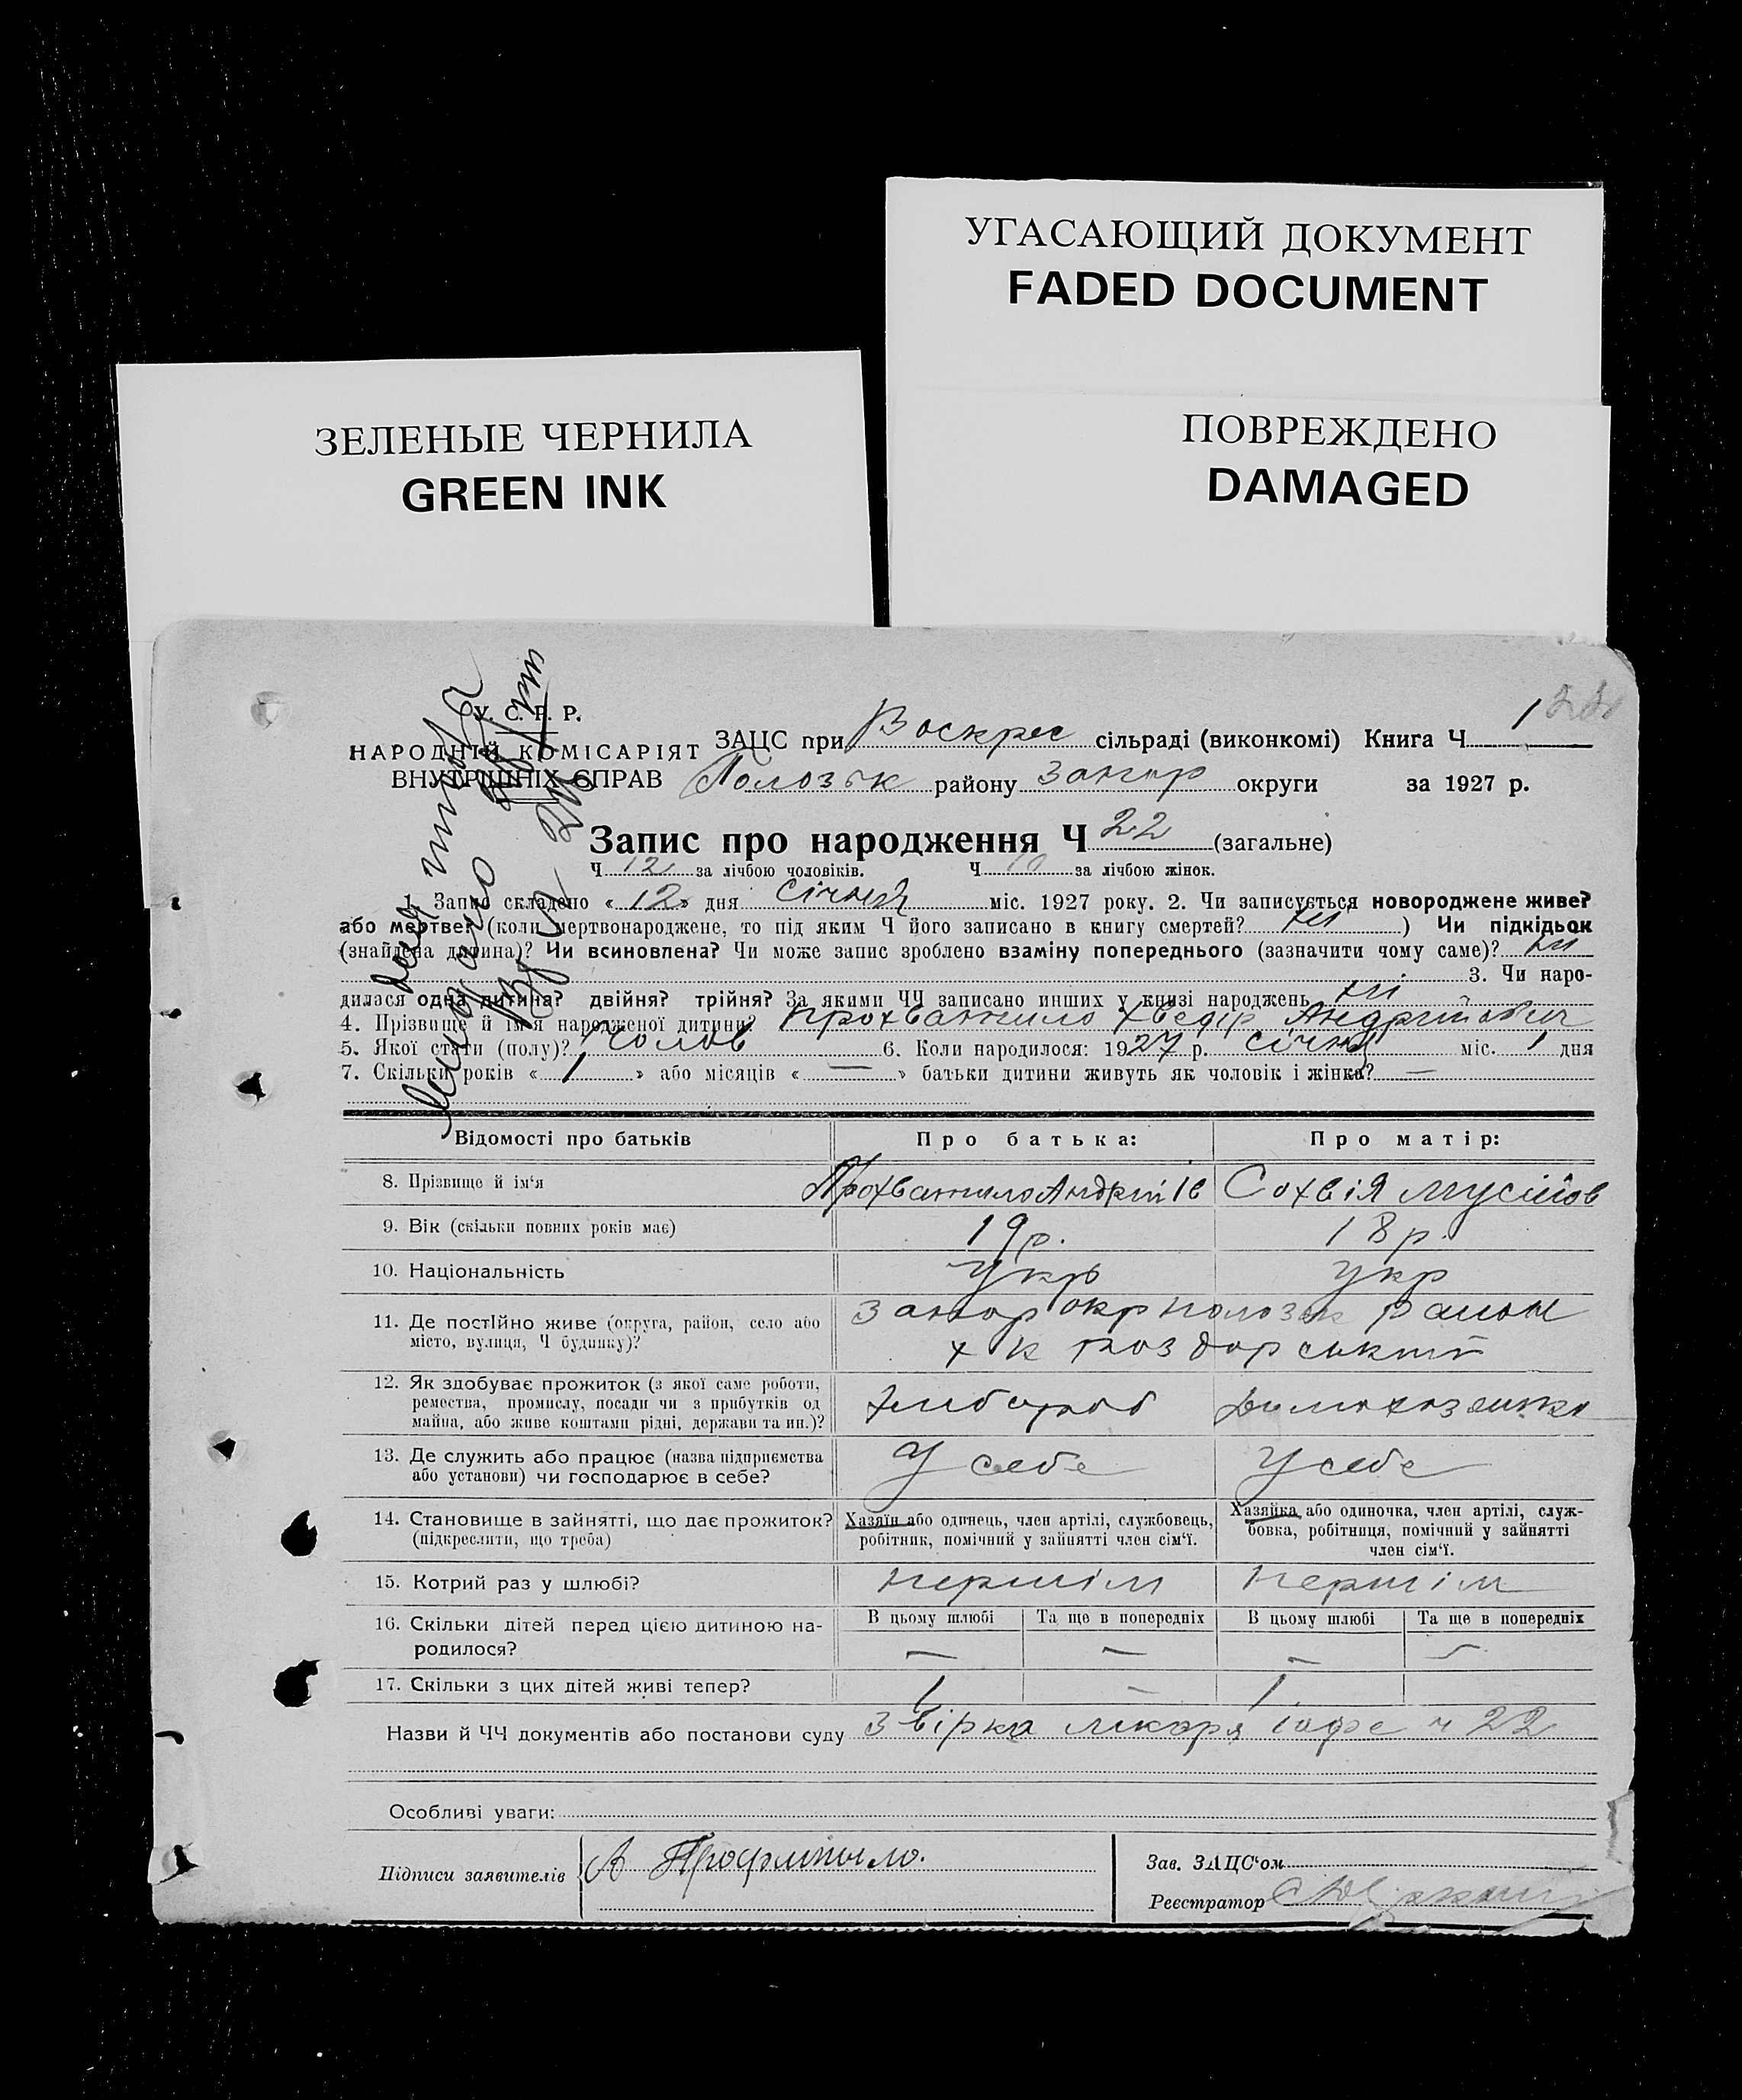 УГАСАЮЩИЙ ДОКУМЕНТ
FADED DOCUMENT
ЗЕЛЕНЫЕ ЧЕРНИЛА
GREEN INK
ПОВРЕЖДЕНО
DAMAGED
У. С. Р. Р.
НАРОДНІЙ КОМІСАРІЯТ
ВНУТРІШНІХ СПРАВ
ЗАЦС при Воскрес сільраді (виконкомі) Книга Ч 1
Полозьк району Запор округи за 1927 р.
Запис про народження Ч 22 (загальне)
Ч 12 за лічбою чоловіків. Ч 10 за лічбою жінок.
1. Запис складено « 12 » дня січня міс. 1927 року. 2. Чи записується новороджене живе?
або мертве? (коли мертвонароджене, то під яким Ч його записано в книгу смертей? ні ) Чи підкідьок
(знайдена дитина)? Чи всиновлена? Чи може запис зроблено взаміну попереднього (зазначити чому саме)? ні
3. Чи наро-
дилася одна дитина? двійня? трійня? За якими ЧЧ записано инших у книзі народжень ні
4. Прізвище й ім'я народженої дитини? Прохватило Хведір Андрійович
5. Якої стати (полу)? Чолов 6. Коли народилося: 1927 р. січня міс. 1 дня
7. Скільки років « 1 » або місяців « — » батьки дитини живуть як чоловік і жінка? —
Відомості про батьків Про батька: Про матір:
8. Прізвище й ім'я Прохватило Андрій Ів Сохвія Мусіїов
9. Вік (скільки повних років має) 19 р. 18 р.
10. Національність Укр Укр
11. Де постійно живе (округа, район, село або Запор окр Полозьк район
місто, вулиця, Ч будинку)? х к Роздорський
12. Як здобуває прожиток (з якої саме роботи,
ремества, промислу, посади чи з прибутків од
майна, або живе коштами рідні, держави та ин.)? хлібороб домохозяйка
13. Де служить або працює (назва підприємства У себе У себе
або установи) чи господарює в себе?
14. Становище в зайнятті, що дає прожиток? Хазяїн або одинець, член артілі, службовець, Хазяйка, або одиночка, член артілі, служ-
(підкреслити, що треба) робітник, помічний у зайнятті член сім'ї. бовка, робітниця, помічний у зайнятті
член сім'ї.
15. Котрий раз у шлюбі? першім першім
16. Скільки дітей перед цією дитиною на- В цьому шлюбі Та ще в попередніх В цьому шлюбі Та ще в попередніх
родилося? — — — —
17. Скільки з цих дітей живі тепер? 1 — 1
Назви й ЧЧ документів або постанови суду Звірка лікаря ч 22
Особливі уваги:
Підписи заявителів А
Зав. ЗАЦС'ом
Реєстратор